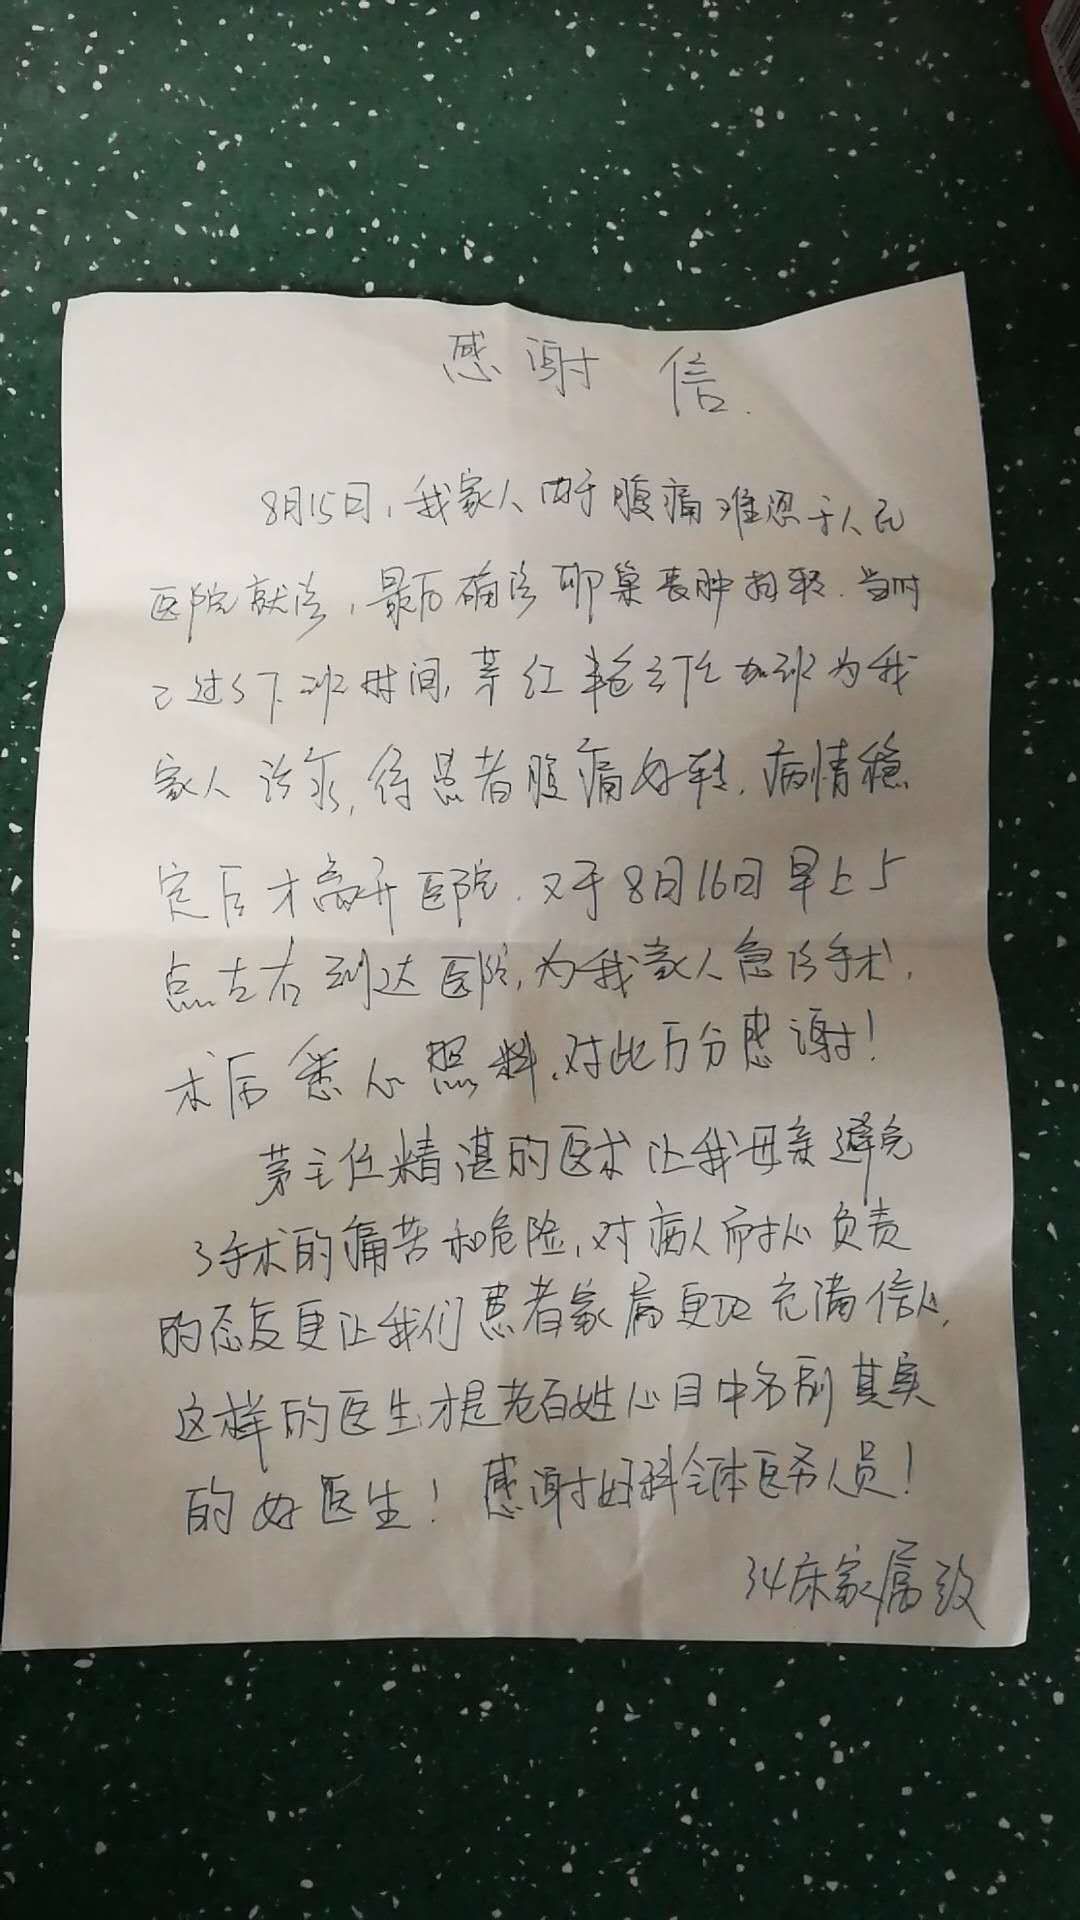 感谢信.
8月15日,我家人由于腹痛难忍于人民
医院就诊,最后确诊卵巢囊肿扭转.当时
已过了下班时间,茅红艳主任加班为我
家人诊察,待患者腹痛好转,病情稳
定后才离开医院.又于8月16日早上5
点左右到达医院,为我家人急诊手术,
术后悉心照料,对此万分感谢!
茅主任精湛的医术让我母亲避免
了手术的痛苦和危险,对病人耐心负责
的态度更让我们患者家属更加充满信心,
这样的医生才是老百姓心目中名副其实
的好医生!感谢妇科全体医务人员!
34床家属致